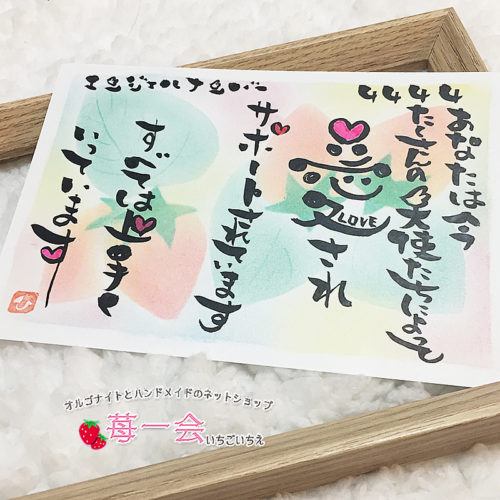 エンジェルナンバー
4444
あなたは今
たくさんの天使たちによって
愛され
LOVE
サポートされています
すべては上手く
いっています
オルゴナイトとハンドメイドのネットショップ
苺一会 いちごいちえ